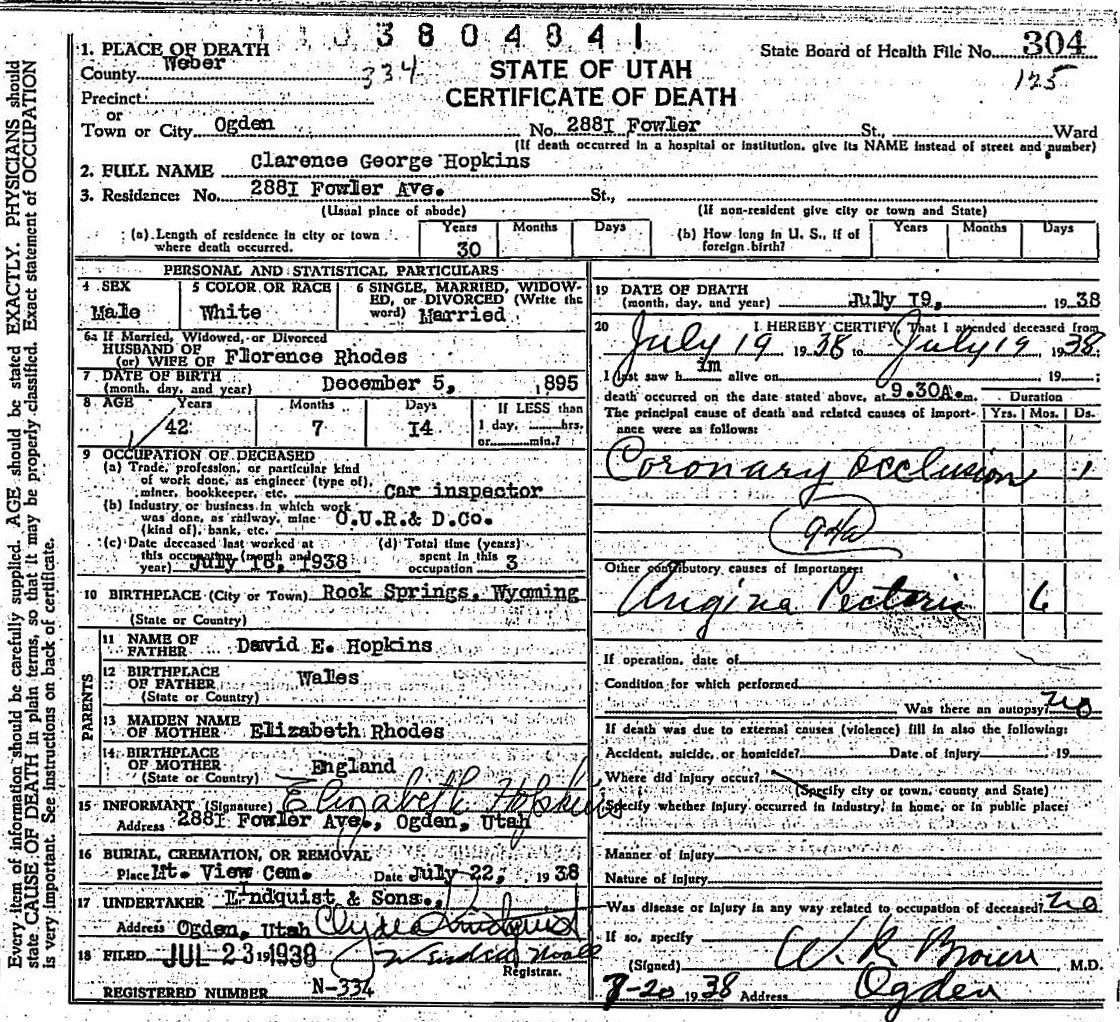 1 1 0 3 8 0 4 8 4 1
State Board of Health File No. 304
125
STATE OF UTAH
CERTIFICATE OF DEATH
1. PLACE OF DEATH
County Weber 334
Precinct
or
Town or City Ogden No. 288I Fowler St., Ward
(If death occurred in a hospital or institution, give its NAME instead of street and number)
2. FULL NAME Clarence George Hopkins
3. Residence: No. 288I Fowler Ave. St.,
(Usual place of abode) (If non-resident give city or town and State)
(a) Length of residence in city or town where death occurred. Years 30 Months Days
(b) How long in U. S., if of foreign birth? Years Months Days
PERSONAL AND STATISTICAL PARTICULARS
4 SEX Male
5 COLOR OR RACE White
6 SINGLE, MARRIED, WIDOWED, or DIVORCED (Write the word) Married
6a If Married, Widowed, or Divorced
HUSBAND OF
(or) WIFE OF Florence Rhodes
7 DATE OF BIRTH
(month, day, and year) December 5, 1895
8 AGE Years 42 Months 7 Days I4 If LESS than
1 day, hrs.
or min.?
9 OCCUPATION OF DECEASED
(a) Trade, profession, or particular kind
of work done, as engineer (type of),
miner, bookkeeper, etc. Car inspector
(b) Industry or business in which work
was done, as railway, mine
(kind of), bank, etc. O.U.R.& D.Co.
(c) Date deceased last worked at
this occupation (month and
year) July 18, 1938
(d) Total time (years)
spent in this
occupation 3
10 BIRTHPLACE (City or Town) Rock Springs, Wyoming
(State or Country)
PARENTS
11 NAME OF
FATHER David E. Hopkins
12 BIRTHPLACE
OF FATHER Wales
(State or Country)
13 MAIDEN NAME
OF MOTHER Elizabeth Rhodes
14 BIRTHPLACE
OF MOTHER England
(State or Country)
15 INFORMANT (Signature) Elizabeth Hopkins
Address 288I Fowler Ave., Ogden, Utah
16 BURIAL, CREMATION, OR REMOVAL
Place Mt. View Cem. Date July 22, 1938
17 UNDERTAKER Lindquist & Sons.,
Address Ogden, Utah Clyde Lindquist
18 FILED JUL 23 1938
Registrar.
REGISTERED NUMBER N-334
19 DATE OF DEATH
(month, day, and year) July I9, 1938
20 I HEREBY CERTIFY, That I attended deceased from
July 19 1938 to July 19 1938;
I last saw h im alive on 19 ;
death occurred on the date stated above, at 9.30A.m.
The principal cause of death and related causes of importance were as follows:
Duration
Yrs. Mos. Ds.
Coronary occlusion 1
94a
Other contributory causes of importance:
Angina Pectoris 6
If operation, date of
Condition for which performed
Was there an autopsy? no
If death was due to external causes (violence) fill in also the following:
Accident, suicide, or homicide? Date of injury 19
Where did injury occur?
(Specify city or town, county and State)
Specify whether injury occurred in industry, in home, or in public place:
Manner of injury
Nature of injury
Was disease or injury in any way related to occupation of deceased? no
If so, specify
(Signed) W. R. Brown, M.D.
7-20 1938 Address Ogden
Every item of information should be carefully supplied. AGE should be stated EXACTLY. PHYSICIANS should
state CAUSE OF DEATH in plain terms, so that it may be properly classified. Exact statement of OCCUPATION
is very important. See instructions on back of certificate.